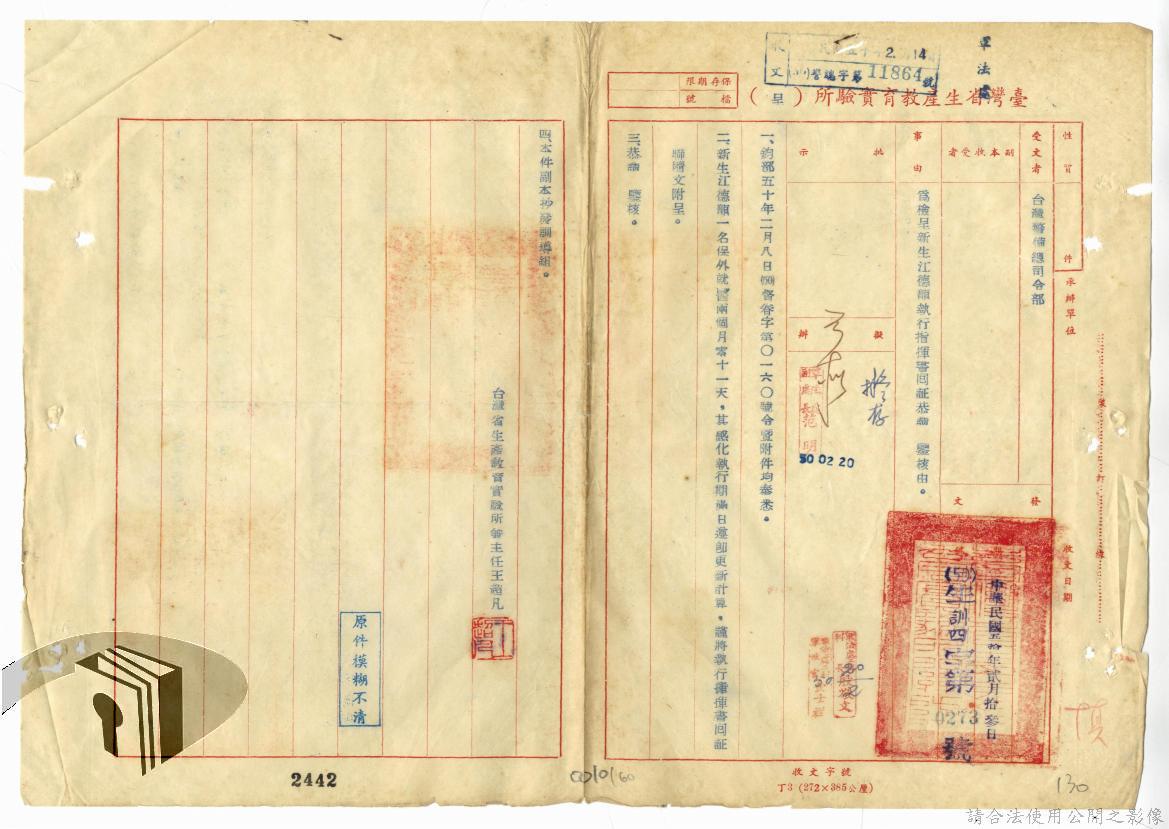 軍法處
收文
2. 14
警 字第11864號
保存期限
檔號
臺灣省生產教育實驗所（呈）
性質
件
受文者
台灣警備總司令部
副本收受者
事由
為檢呈新生江德龍執行指揮書回証恭請　鑒核由。
批示
擬辦
擬存
50 02 20
發文
中華民國五拾年貳月拾參日
(50)生訓四字第
0273
號
承辦單位
收文日期
收文字號
一、鈞部五十年二月八日 督眷字第〇一六〇號令暨附件均奉悉。
二、新生江德龍一名保外就醫兩個月零十一天，其感化執行期滿日遵即更新計算，謹將執行指揮書回証
聯隨文附呈。
三、恭請　鑒核。
丁3 (272×385公厘)
130
四、本件副本抄發訓導組。
台灣省生產教育實驗所兼主任王超凡
王超凡
原件模糊不清
2442
請合法使用公開之影像